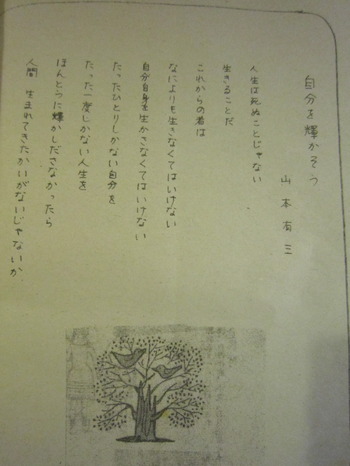 自分を輝かそう
山本有三
人生は死ぬことじゃない
生きることだ
これからの君は
なによりも生きなくてはいけない
自分自身を生かさなくてはいけない
たったひとりしかない自分を
たった一度しかない人生を
ほんとうに輝かしださなかったら
人間 生まれてきたかいがないじゃないか